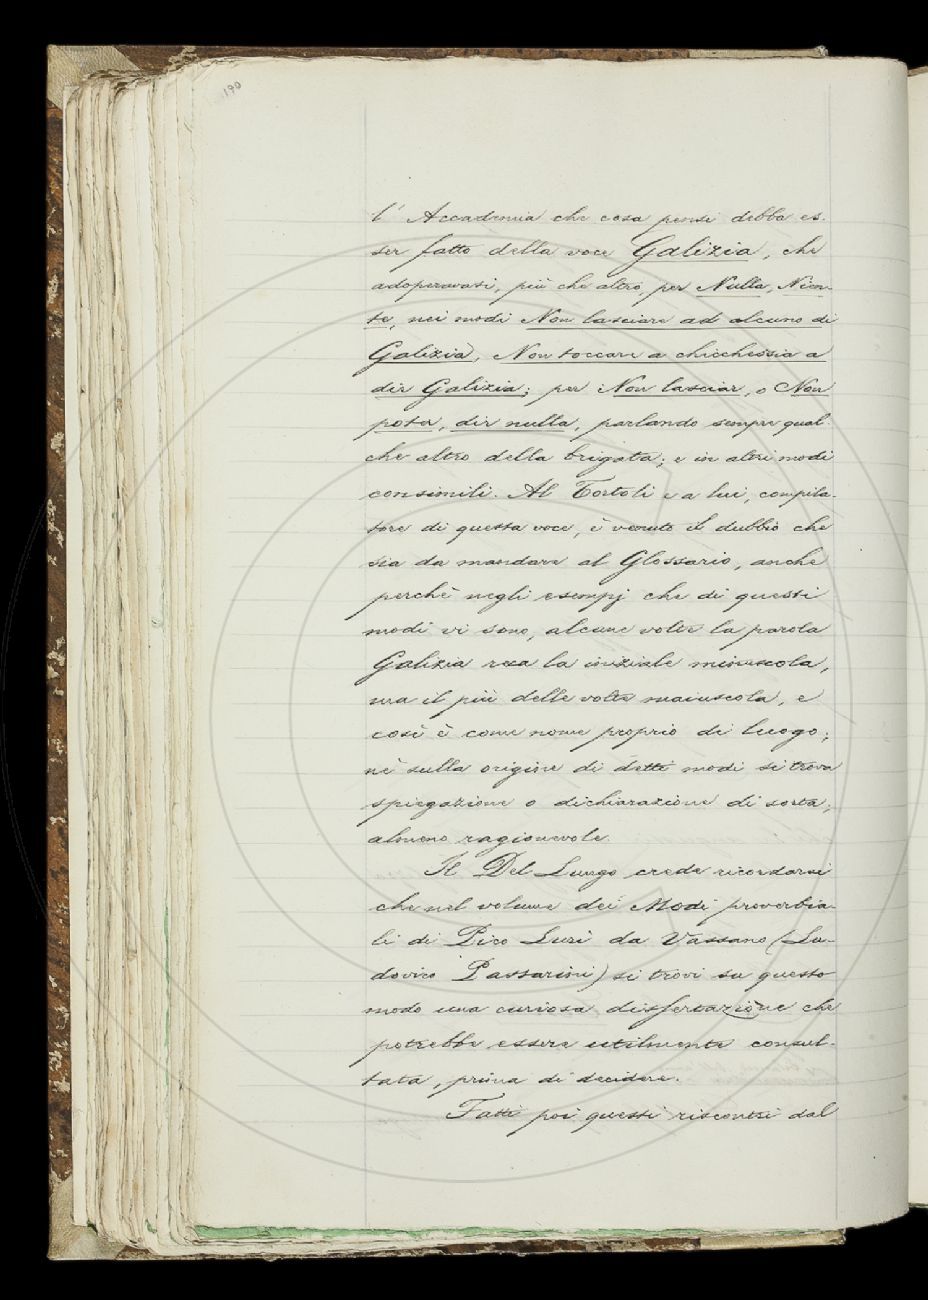 190
l' Accademia che cosa pensi debba es-
ser fatto della voce Galizia, che
adoperavasi, più che altro, per Nulla, Nien-
te, nei modi Non lasciare ad alcuno di
Galizia, Non toccare a chicchessia a
dir Galizia; per Non lasciar, o Non
poter, dir nulla, parlando sempre qual-
che altro della brigata; e in altri modi
consimili. Al Tortoli e a lui, compila-
tore di questa voce, è venuto il dubbio che
sia da mandare al Glossario, anche
perchè negli esempj che di questi
modi vi sono, alcune volte la parola
Galizia reca la iniziale minuscola,
ma il più delle volte maiuscola, e
così è come nome proprio di luogo;
nè sulla origine di detti modi si trova
spiegazione o dichiarazione di sorta,
almeno ragionevole.
Il Del Lungo crede ricordarsi
che nel volume dei Modi proverbia-
li di Pico Luri da Vassano (Lu-
dovico Passarini) si trovi su questo
modo una curiosa dissertazione che
potrebbe essere utilmente consul-
tata, prima di decidere.
Fatti poi questi riscontri dal